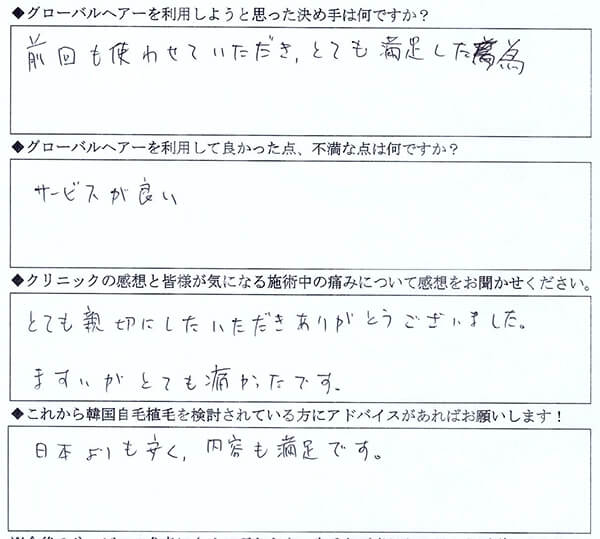 ◆グローバルヘアーを利用しようと思った決め手は何ですか？
前回も使わせていただき、とても満足した為
◆グローバルヘアーを利用して良かった点、不満な点は何ですか？
サービスが良い
◆クリニックの感想と皆様が気になる施術中の痛みについて感想をお聞かせください。
とても親切にしたいただきありがとうございました。
ますいがとても痛かったです。
◆これから韓国自毛植毛を検討されている方にアドバイスがあればお願いします！
日本よりも安く、内容も満足です。